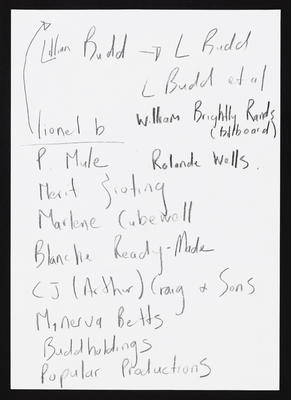 Lillian Budd → L Budd
L Budd et al
lionel b
William Brightly Rands
(billboard)
P. Mule
Rolande Wells.
Merit
Marlene Cubewell
Blanche Ready-Made
CJ (Arthur) Craig & Sons
Minerva Betts
Buddholdings
Popular Productions